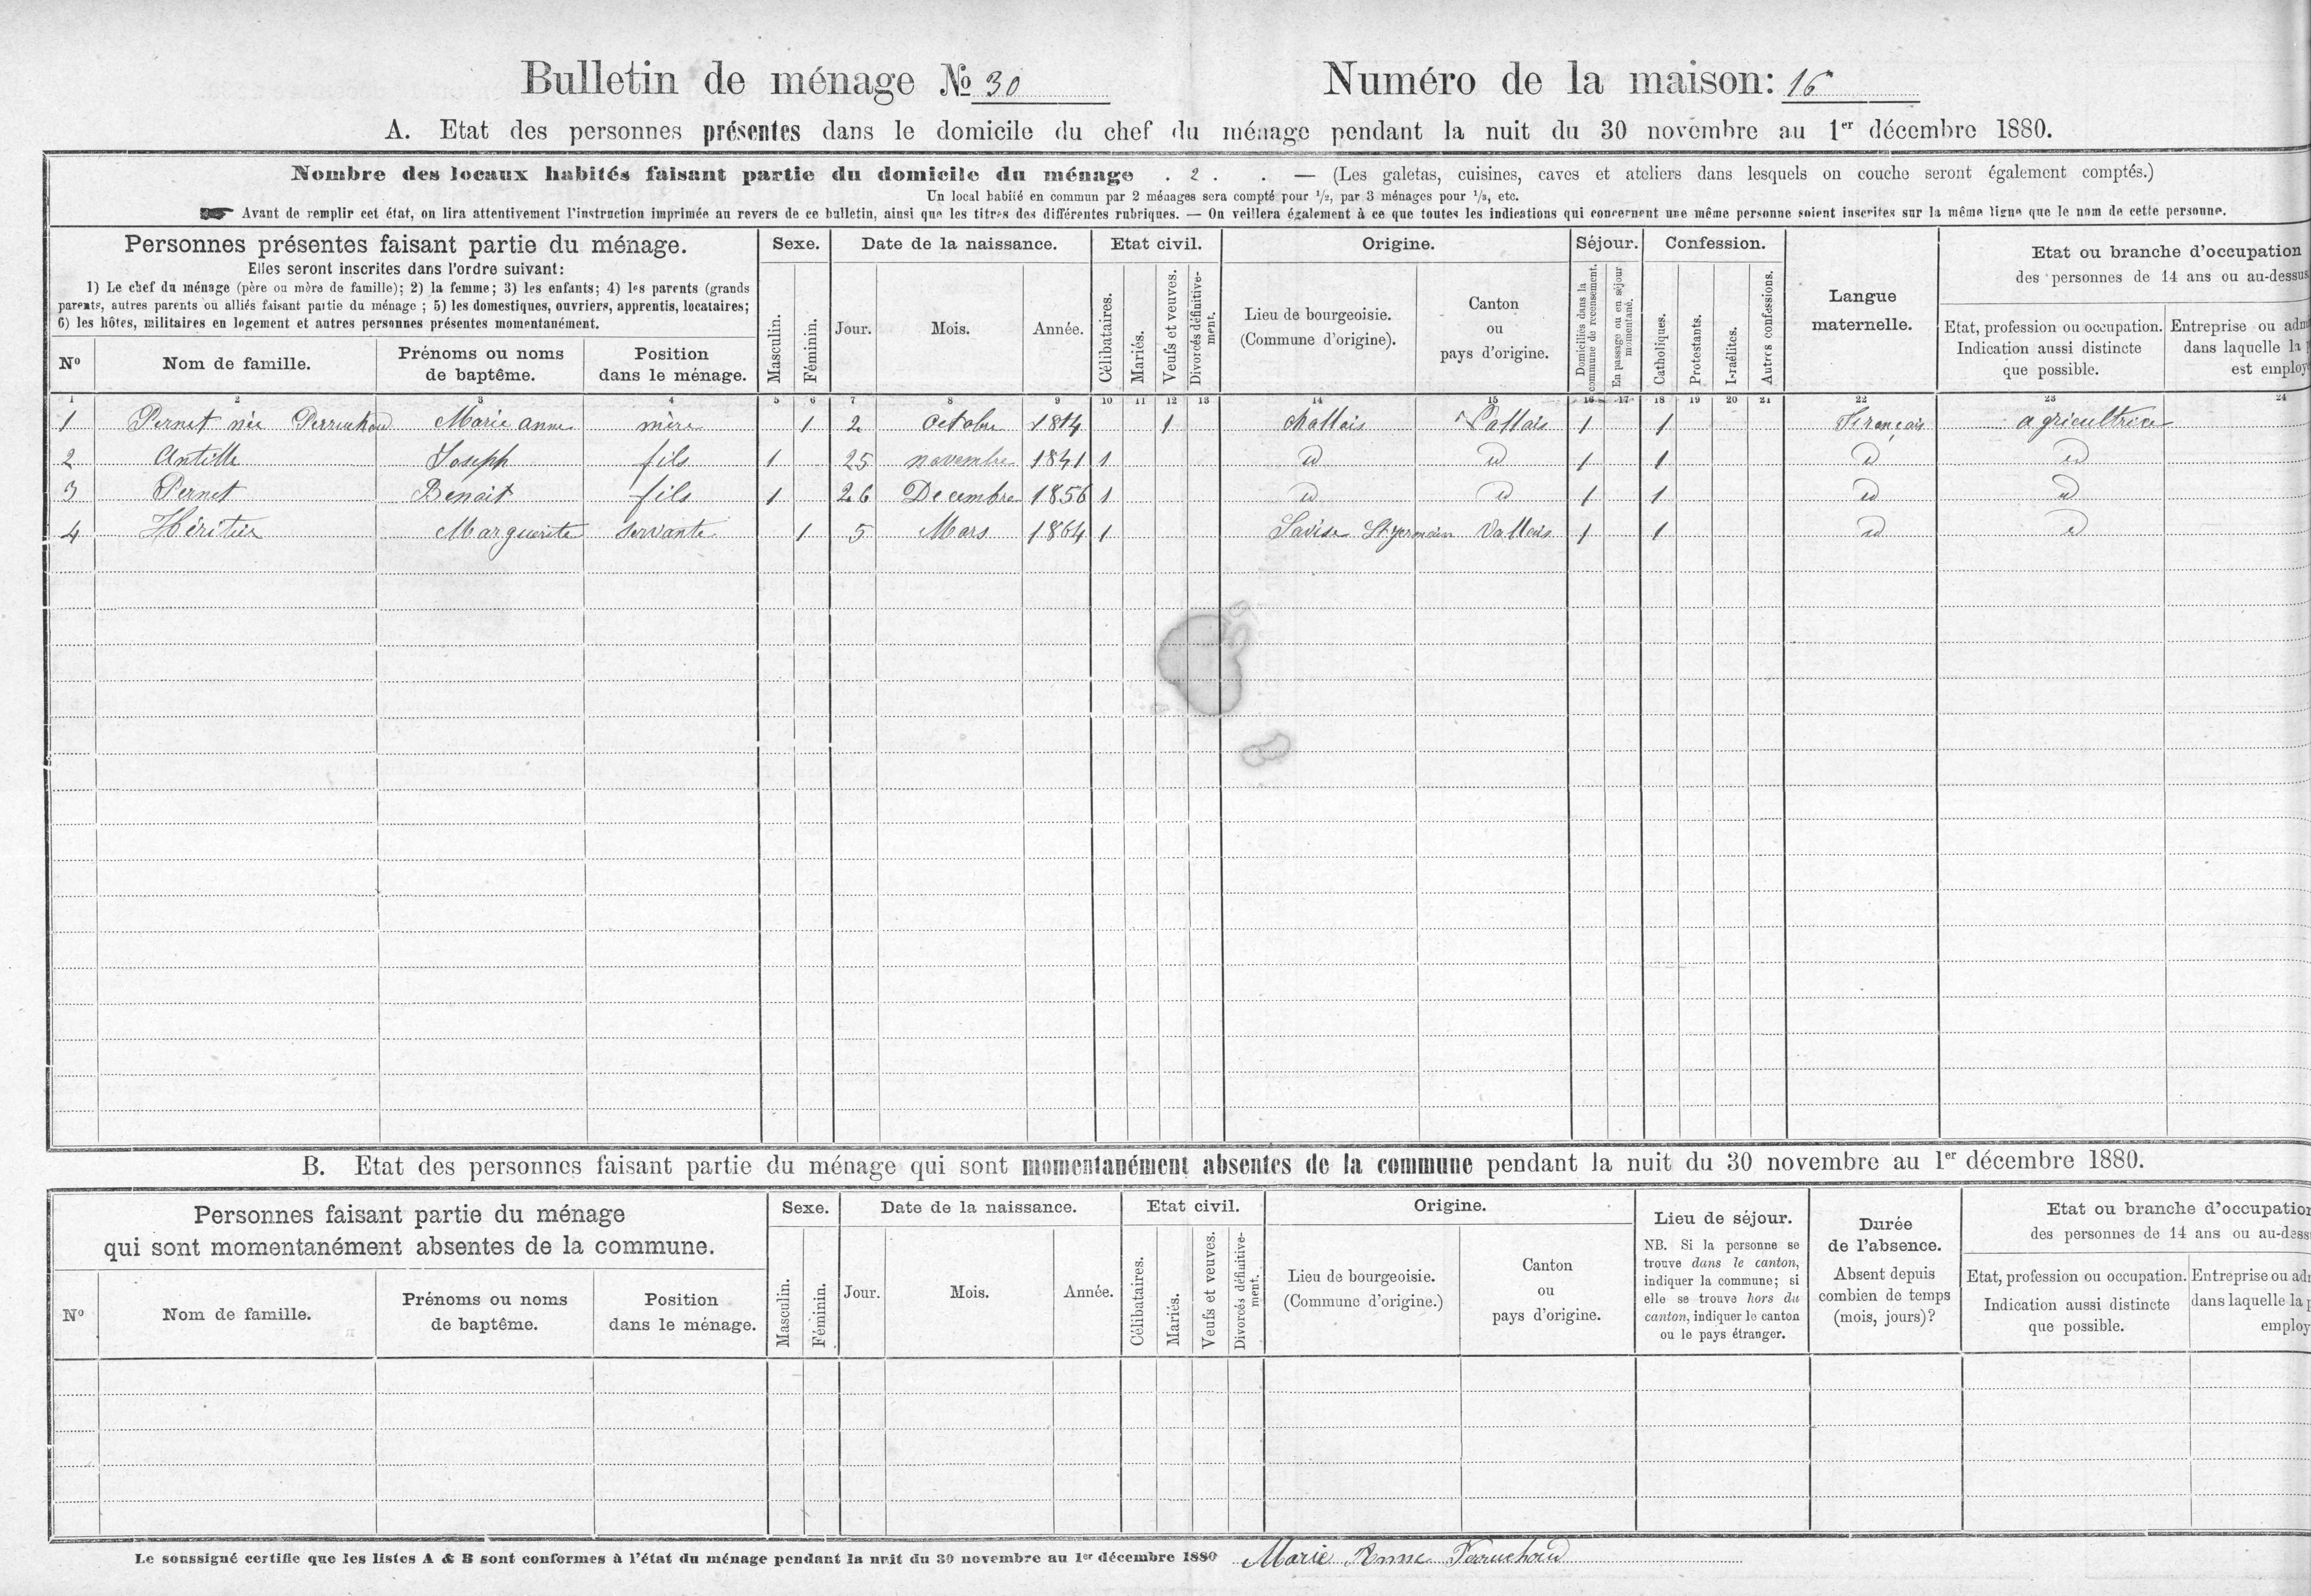 Bulletin de ménage № 30 Numéro de la maison: 16
A. Etat des personnes présentes dans le domicile du chef du ménage pendant la nuit du 30 novembre au 1er décembre 1880.
Nombre des locaux habités faisant partie du domicile du ménage . 2 . . — (Les galetas, cuisines, caves et ateliers dans lesquels on couche seront également comptés.)
Un local habité en commun par 2 ménages sera compté pour 1/2, par 3 ménages pour 1/3, etc.
☛ Avant de remplir cet état, on lira attentivement l'instruction imprimée au revers de ce bulletin, ainsi que les titres des différentes rubriques. — On veillera également à ce que toutes les indications qui concernent une même personne soient inscrites sur la même ligne que le nom de cette personne.
Personnes présentes faisant partie du ménage.
Elles seront inscrites dans l'ordre suivant:
1) Le chef du ménage (père ou mère de famille); 2) la femme; 3) les enfants; 4) les parents (grands
parents, autres parents ou alliés faisant partie du ménage ; 5) les domestiques, ouvriers, apprentis, locataires;
6) les hôtes, militaires en logement et autres personnes présentes momentanément.
Nº
Nom de famille.
Prénoms ou noms
de baptême.
Position
dans le ménage.
Sexe.
Masculin.
Féminin.
Date de la naissance.
Jour.
Mois.
Année.
Etat civil.
Célibataires.
Mariés.
Veufs et veuves.
Divorcés définitive-
ment.
Origine.
Lieu de bourgeoisie.
(Commune d'origine).
Canton
ou
pays d'origine.
Séjour.
Domiciliés dans la
commune de recensement.
En passage ou en séjour
momentané.
Confession.
Catholiques.
Protestants.
Israélites.
Autres confessions.
Langue
maternelle.
Etat ou branche d'occupation
des personnes de 14 ans ou au-dessus
Etat, profession ou occupation.
Indication aussi distincte
que possible.
Entreprise ou adm
dans laquelle la p
est employ
1 2 3 4 5 6 7 8 9 10 11 12 13 14 15 16 17 18 19 20 21 22 23 24
1 Pernet née Perruchoud Marie anne mère 1 2 octobre 1814 1 Challais Vallais 1 1 Français agricultrice
2 Antille Joseph fils 1 25 novembre 1841 1 id id 1 1 id id
3 Pernet Benoit fils 1 26 Decembre 1856 1 id id 1 1 id id
4 Héritier Marguerite servante 1 5 Mars 1864 1 Savièse St germain Vallais 1 1 id id
B. Etat des personnes faisant partie du ménage qui sont momentanément absentes de la commune pendant la nuit du 30 novembre au 1er décembre 1880.
Personnes faisant partie du ménage
qui sont momentanément absentes de la commune.
Nº
Nom de famille.
Prénoms ou noms
de baptême.
Position
dans le ménage.
Sexe.
Masculin.
Féminin.
Date de la naissance.
Jour.
Mois.
Année.
Etat civil.
Célibataires.
Mariés.
Veufs et veuves.
Divorcés définitive-
ment.
Origine.
Lieu de bourgeoisie.
(Commune d'origine.)
Canton
ou
pays d'origine.
Lieu de séjour.
NB. Si la personne se
trouve dans le canton,
indiquer la commune; si
elle se trouve hors du
canton, indiquer le canton
ou le pays étranger.
Durée
de l'absence.
Absent depuis
combien de temps
(mois, jours)?
Etat ou branche d'occupation
des personnes de 14 ans ou au-dess
Etat, profession ou occupation.
Indication aussi distincte
que possible.
Entreprise ou adm
dans laquelle la p
employ
Le soussigné certifie que les listes A & B sont conformes à l'état du ménage pendant la nuit du 30 novembre au 1er décembre 1880 Marie Anne Perruchoud